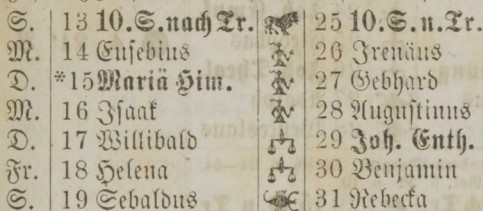 S. 13 10. S. nach Tr. 25 10. S. n. Tr.
M. 14 Eusebius 26 Irenäus
D. *15 Mariä Him. 27 Gebhard
M. 16 Isaak 28 Augustinus
D. 17 Willibald 29 Joh. Enth.
Fr. 18 Helena 30 Benjamin
S. 19 Sebaldus 31 Rebecka